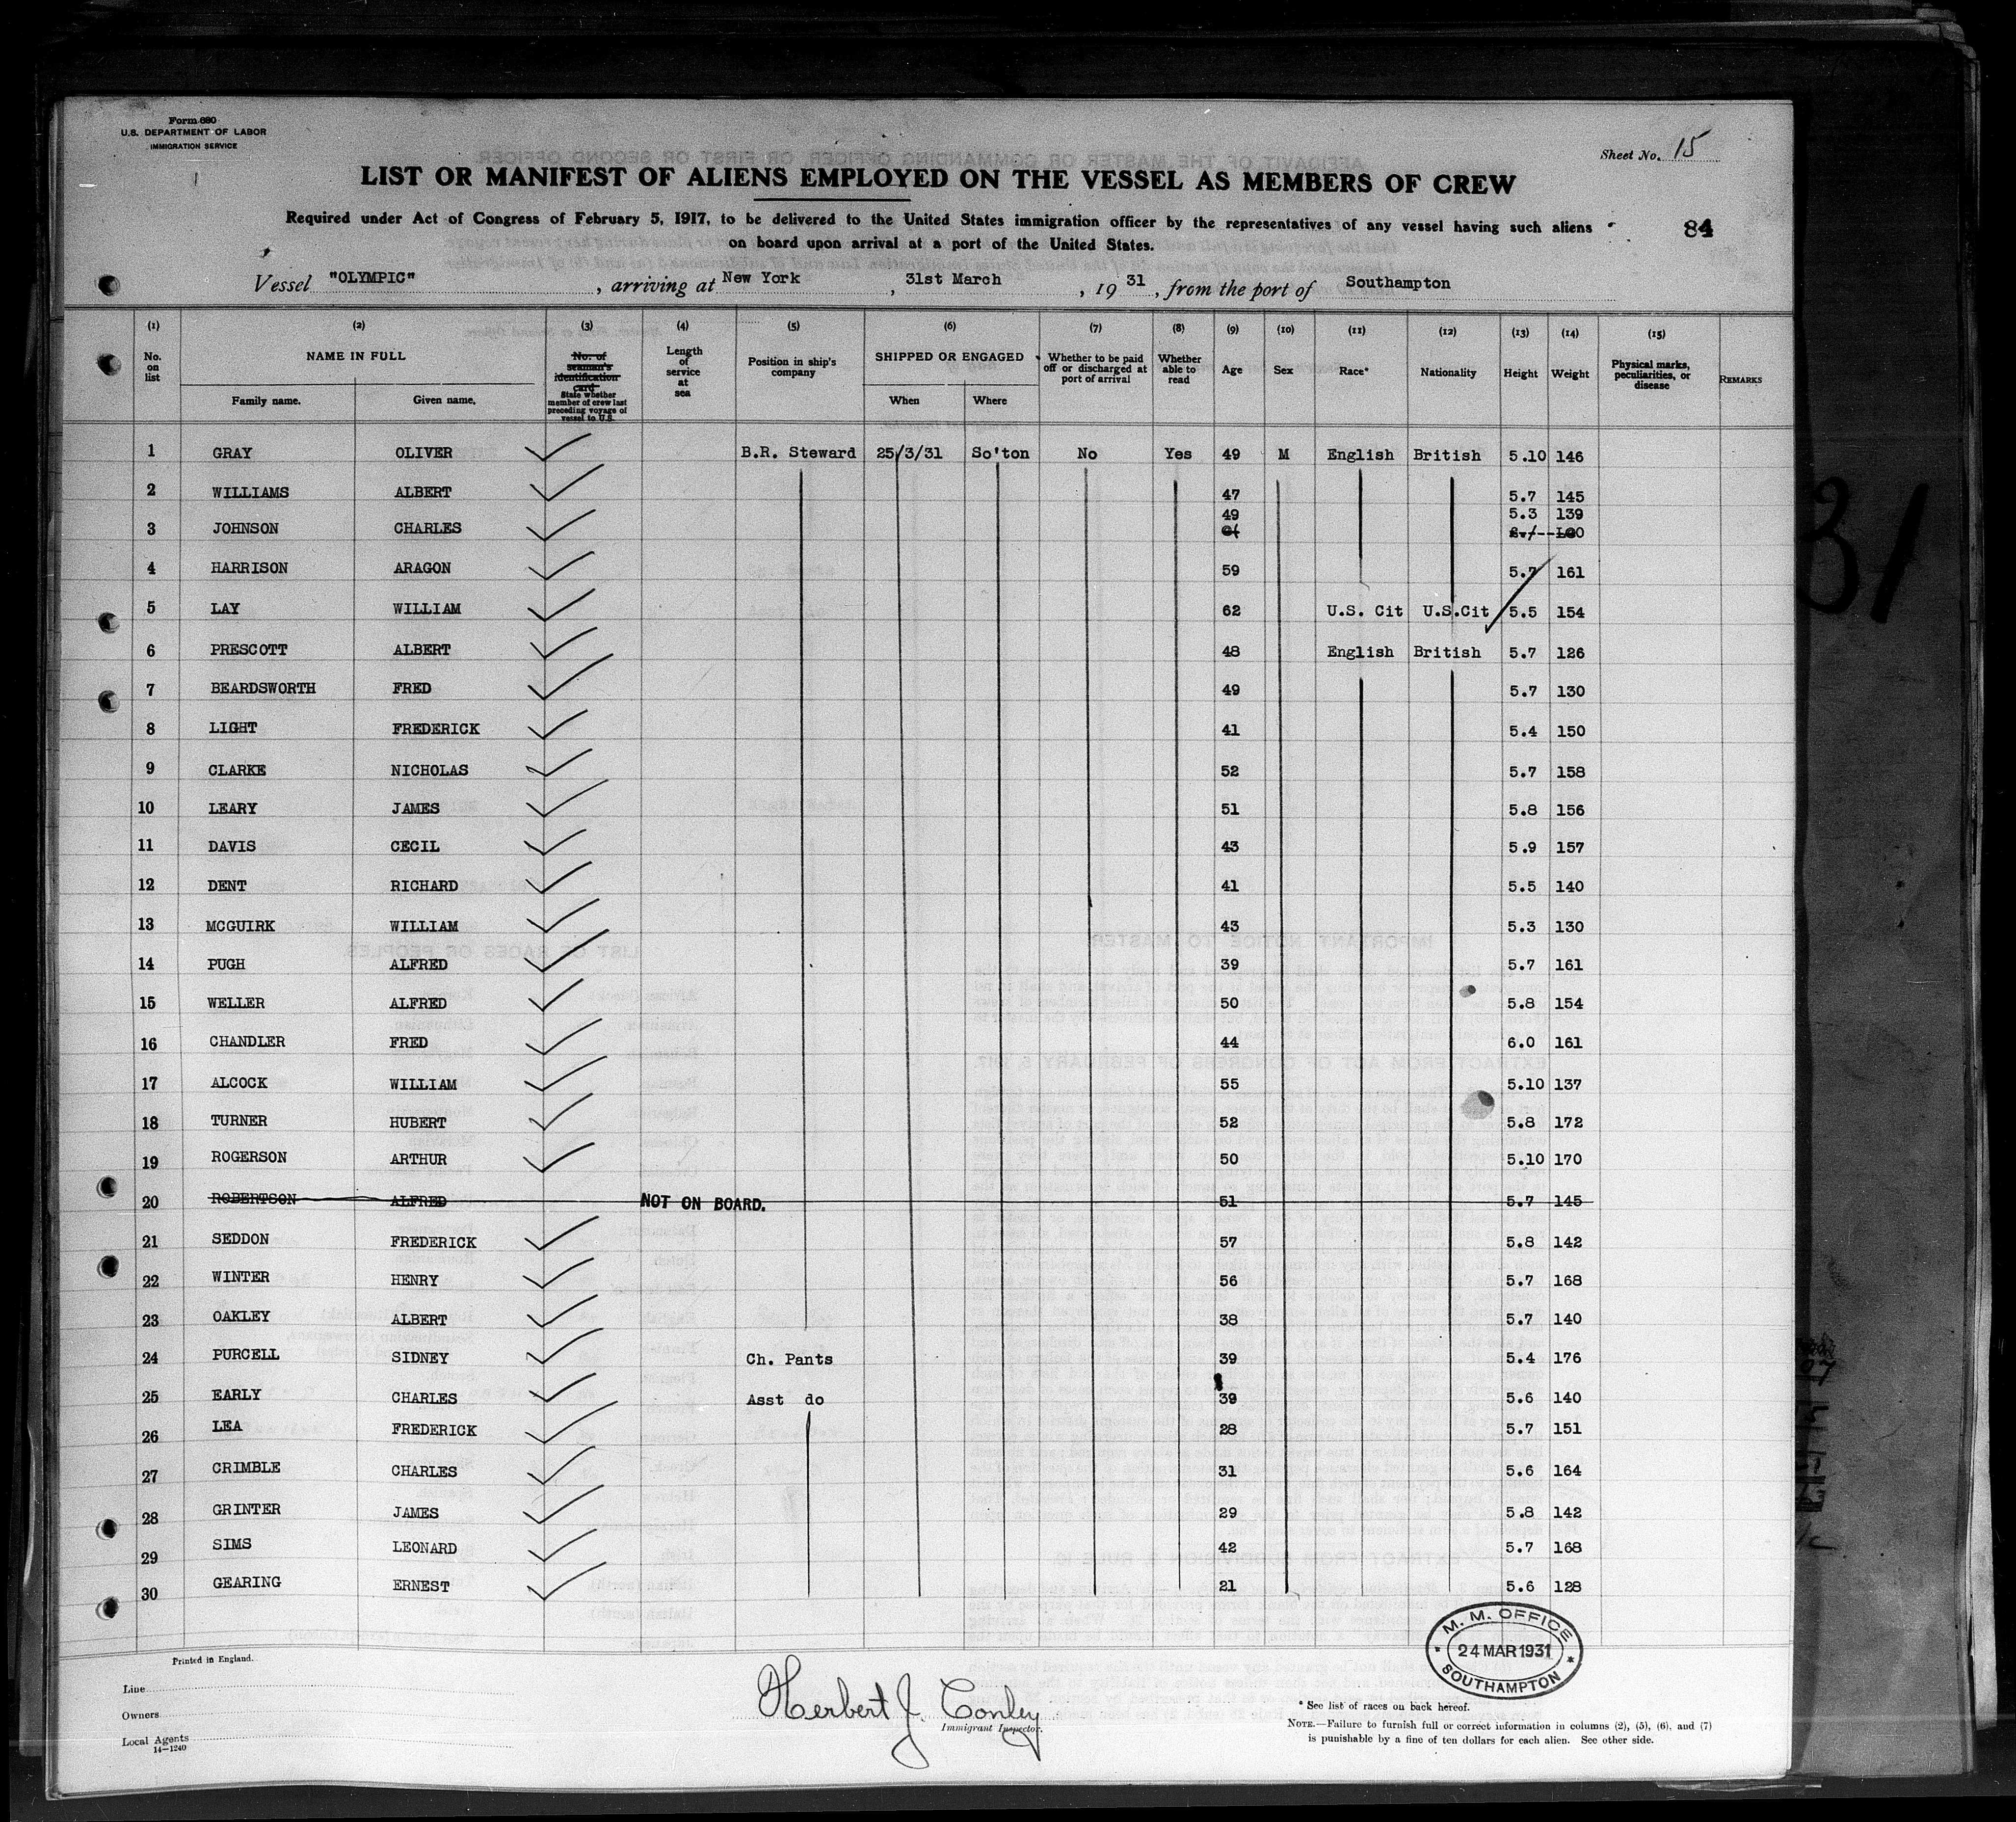 Form 680
U.S. DEPARTMENT OF LABOR
IMMIGRATION SERVICE
Sheet No. 15
LIST OR MANIFEST OF ALIENS EMPLOYED ON THE VESSEL AS MEMBERS OF CREW
Required under Act of Congress of February 5, 1917, to be delivered to the United States immigration officer by the representatives of any vessel having such aliens
on board upon arrival at a port of the United States.
84
Vessel "OLYMPIC", arriving at New York, 31st March, 1931, from the port of Southampton
(1) (2) (3) (4) (5) (6) (7) (8) (9) (10) (11) (12) (13) (14) (15)
No. on list NAME IN FULL Family name. Given name. No. of seaman's identification card State whether member of crew last preceding voyage of vessel to U.S. Length of service at sea Position in ship's company SHIPPED OR ENGAGED When Where Whether to be paid off or discharged at port of arrival Whether able to read Age Sex Race* Nationality Height Weight Physical marks, peculiarities, or disease REMARKS
1 GRAY OLIVER B.R. Steward 25/3/31 So'ton No Yes 49 M English British 5.10 146
2 WILLIAMS ALBERT 47 5.7 145
3 JOHNSON CHARLES 49 5.3 139
4 HARRISON ARAGON 59 5.7 161
5 LAY WILLIAM 62 U.S. Cit U.S.Cit 5.5 154
6 PRESCOTT ALBERT 48 English British 5.7 126
7 BEARDSWORTH FRED 49 5.7 130
8 LIGHT FREDERICK 41 5.4 150
9 CLARKE NICHOLAS 52 5.7 158
10 LEARY JAMES 51 5.8 156
11 DAVIS CECIL 43 5.9 157
12 DENT RICHARD 41 5.5 140
13 MCGUIRK WILLIAM 43 5.3 130
14 PUGH ALFRED 39 5.7 161
15 WELLER ALFRED 50 5.8 154
16 CHANDLER FRED 44 6.0 161
17 ALCOCK WILLIAM 55 5.10 137
18 TURNER HUBERT 52 5.8 172
19 ROGERSON ARTHUR 50 5.10 170
20 ROBERTSON ALFRED NOT ON BOARD. 51 5.7 145
21 SEDDON FREDERICK 57 5.8 142
22 WINTER HENRY 56 5.7 168
23 OAKLEY ALBERT 38 5.7 140
24 PURCELL SIDNEY Ch. Pants 39 5.4 176
25 EARLY CHARLES Asst do 39 5.6 140
26 LEA FREDERICK 28 5.7 151
27 CRIMBLE CHARLES 31 5.6 164
28 GRINTER JAMES 29 5.8 142
29 SIMS LEONARD 42 5.7 168
30 GEARING ERNEST 21 5.6 128
M. M. OFFICE
24 MAR 1931
SOUTHAMPTON
Printed in England.
Line
Owners
Local Agents
14—1240
Herbert J. Conley
Immigrant Inspector.
* See list of races on back hereof.
NOTE.—Failure to furnish full or correct information in columns (2), (5), (6), and (7)
is punishable by a fine of ten dollars for each alien. See other side.